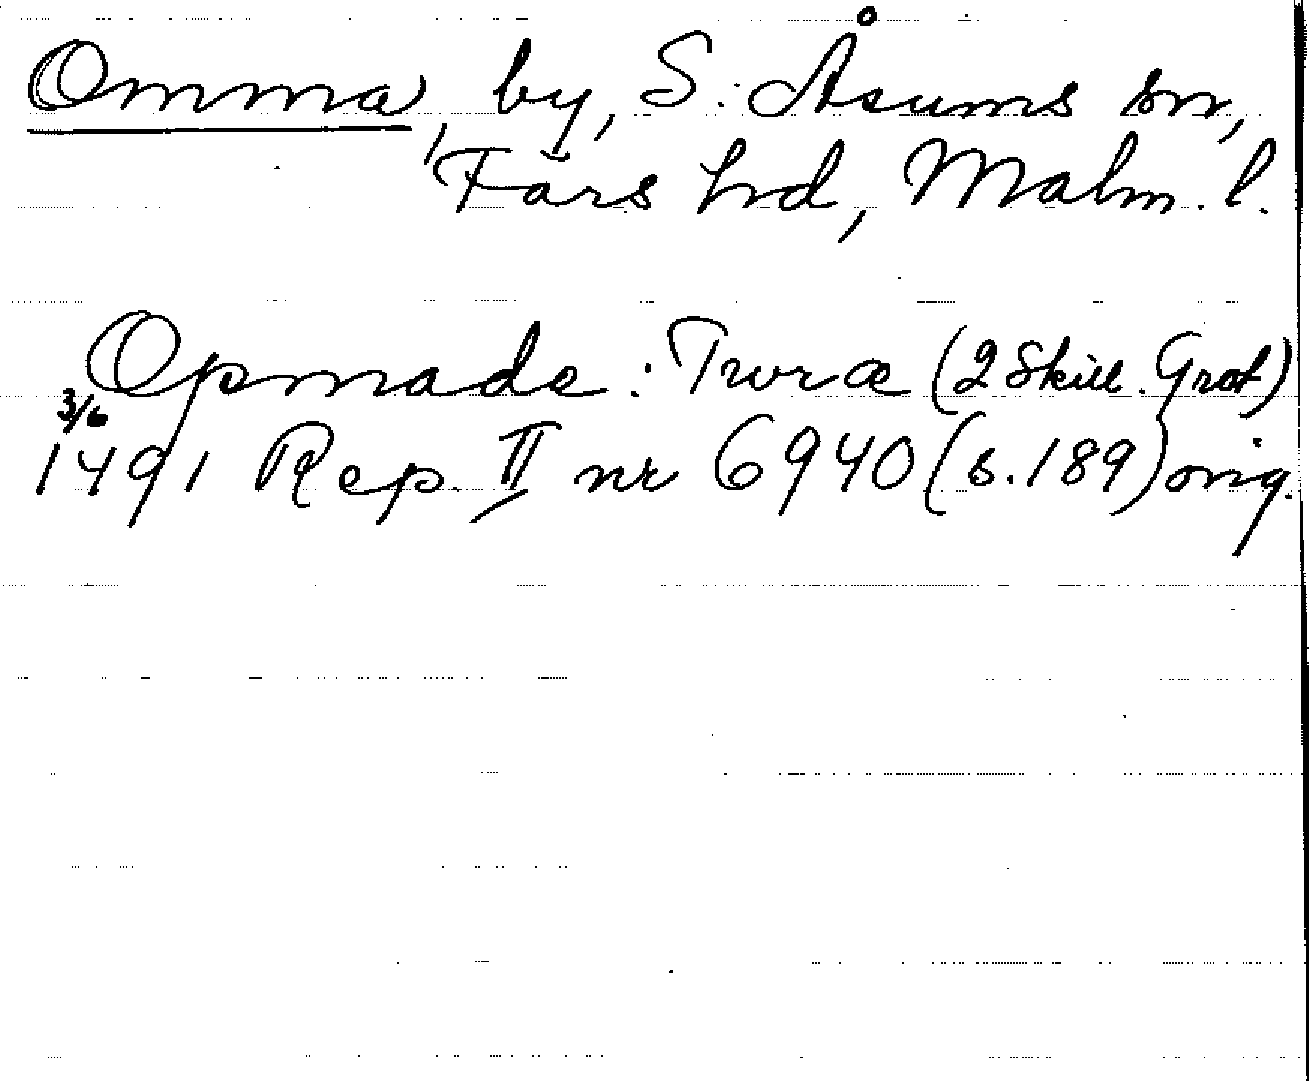 Omma, by, S. Åsums sn,
Färs hd, Malm. l.
Opmade : Twræ (2 Skill. Grot)
3/6
1491 Rep. II nr 6940 (s. 189) orig.